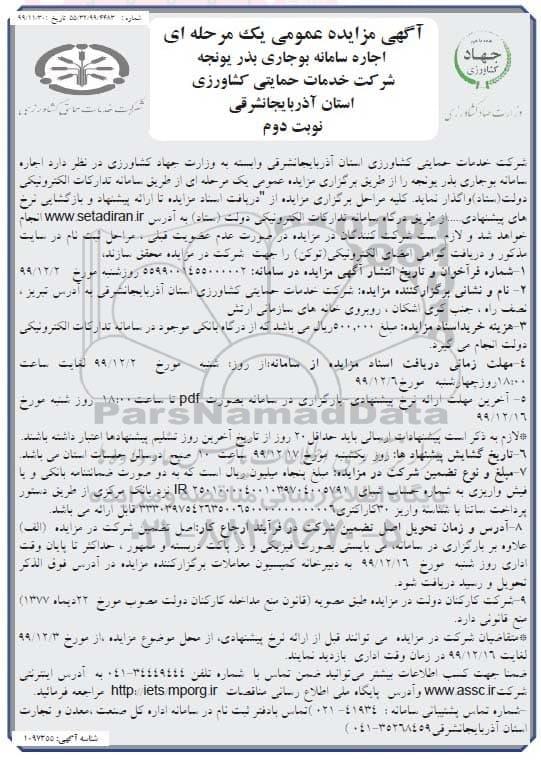 شماره: ۵۵/۳۲/۹۹/۴۴۸۳ تاریخ: ۹۹/۱۱/۳۰
آگهی مزایده عمومی یک مرحله ای
اجاره سامانه بوجاری بذر یونجه
شرکت خدمات حمایتی کشاورزی
استان آذربایجانشرقی
نوبت دوم
جهاد
کشاورزی
وزارت جهاد کشاورزی
شرکت خدمات حمایتی کشاورزی
شرکت خدمات حمایتی کشاورزی استان آذربایجانشرقی وابسته به وزارت جهاد کشاورزی در نظر دارد اجاره
سامانه بوجاری بذر یونجه را از طریق برگزاری مزایده عمومی یک مرحله ای از طریق سامانه تدارکات الکترونیکی
دولت(ستاد)واگذار نماید. کلیه مراحل برگزاری مزایده از "دریافت اسناد مزایده تا ارائه پیشنهاد و بازگشایی نرخ
های پیشنهادی....از طریق درگاه سامانه تدارکات الکترونیکی دولت (ستاد) به آدرس www setadiran.ir انجام
خواهد شد و لازم است شرکت کنندگان در مزایده در صورت عدم عضویت قبلی ، مراحل ثبت نام در سایت
مذکور و دریافت گواهی امضای الکترونیکی(توکن) را جهت شرکت در مزایده محقق سازند،
۱-شماره فرآخوان و تاریخ انتشار آگهی مزایده در سامانه: ۵۵۹۹۰۰۱۴۵۵۰۰۰۰۰۲ روزشنبه مورخ ۹۹/۱۲/۲
۲- نام و نشانی برگزارکننده مزایده: شرکت خدمات حمایتی کشاورزی استان آذربایجانشرقی به آدرس تبریز ،
نصف راه ، جنب کوی اشکان ، روبروی خانه های سازمانی ارتش
۳-هزینه خریداسناد مزایده: مبلغ ۵۰۰,۰۰۰ریال می باشد که از درگاه بانکی موجود در سامانه تدارکات الکترونیکی
دولت انجام می گیرد.
۴-مهلت زمانی دریافت اسناد مزایده از سامانه:از روز: شنبه مورخ ۹۹/۱۲/۲ لغایت ساعت
۱۸:۰۰روزچهارشنبه مورخ۹۹/۱۲/۶
۵- آخرین مهلت ارائه نرخ پیشنهادی -بارگزاری در سامانه بصورت pdf تا ساعت۱۸:۰۰ روز شنبه مورخ
۹۹/۱۲/۱۶
*لازم به ذکر است پیشنهادات ارسالی باید حداقل ۲۰ روز از تاریخ آخرین روز تسلیم پیشنهادها اعتبار داشته باشند.
۶-تاریخ گشایش پیشنهاد ها: روز یکشنبه مورخ ۹۹/۱۲/۱۷ ساعت ۱۰ صبح درسالن جلسات استان می باشد.
۷-مبلغ و نوع تضمین شرکت در مزایده: مبلغ پنجاه میلیون ریال است که به دو صورت ضمانتنامه بانکی و یا
فیش واریزی به شماره حساب شبای IR نزد بانک مرکزی از طریق دستور
پرداخت ساتنا با شناسه واریز ۳۰کاراکتری قابل ارائه می باشد.
۸-آدرس و زمان تحویل اصل تضمین شرکت در فرآیند ارجاع کار:اصل تضمین شرکت در مزایده (الف)
علاوه بر بارگزاری در سامانه، می بایستی بصورت فیزیکی و در پاکت دربسته و ممهور ، حداکثر تا پایان وقت
اداری روز شنبه مورخ ۹۹/۱۲/۱۶ به دبیرخانه کمیسیون معاملات برگزارکننده مزایده در آدرس فوق الذکر
تحویل و رسید دریافت شود.
۹-شرکت کارکنان دولت در مزایده طبق مصوبه (قانون منع مداخله کارکنان دولت مصوب مورخ ۲۲دیماه ۱۳۷۷)
منع قانونی دارد.
*متقاضیان شرکت در مزایده می توانند قبل از ارائه نرخ پیشنهادی، از محل موضوع مزایده ،از مورخ ۹۹/۱۲/۳
لغایت ۹۹/۱۲/۱۶ در وقت اداری بازدید نمایند.
ضمنا جهت کسب اطلاعات بیشتر می‌توانید ضمن تماس با شماره تلفن ۳۴۴۴۹۴۴۴-۰۴۱ به آدرس اینترنتی
شرکت www assc.ir وآدرس پایگاه ملی اطلاع رسانی مناقصات http: iets mporg ir مراجعه فرمائید.
-شماره تماس پشتیبانی سامانه : ۴۱۹۳۴- ۰۲۱ )تماس بادفتر ثبت نام در سامانه اداره کل صنعت ،معدن و تجارت
استان آذربایجانشرقی۳۵۲۶۸۴۵۹-۰۴۱ )
شناسه آگهی: ۱۰۹۷۳۵۵
ParsNamadData
۰۲۱-۸۸۳۴۹۶۷۰-۵